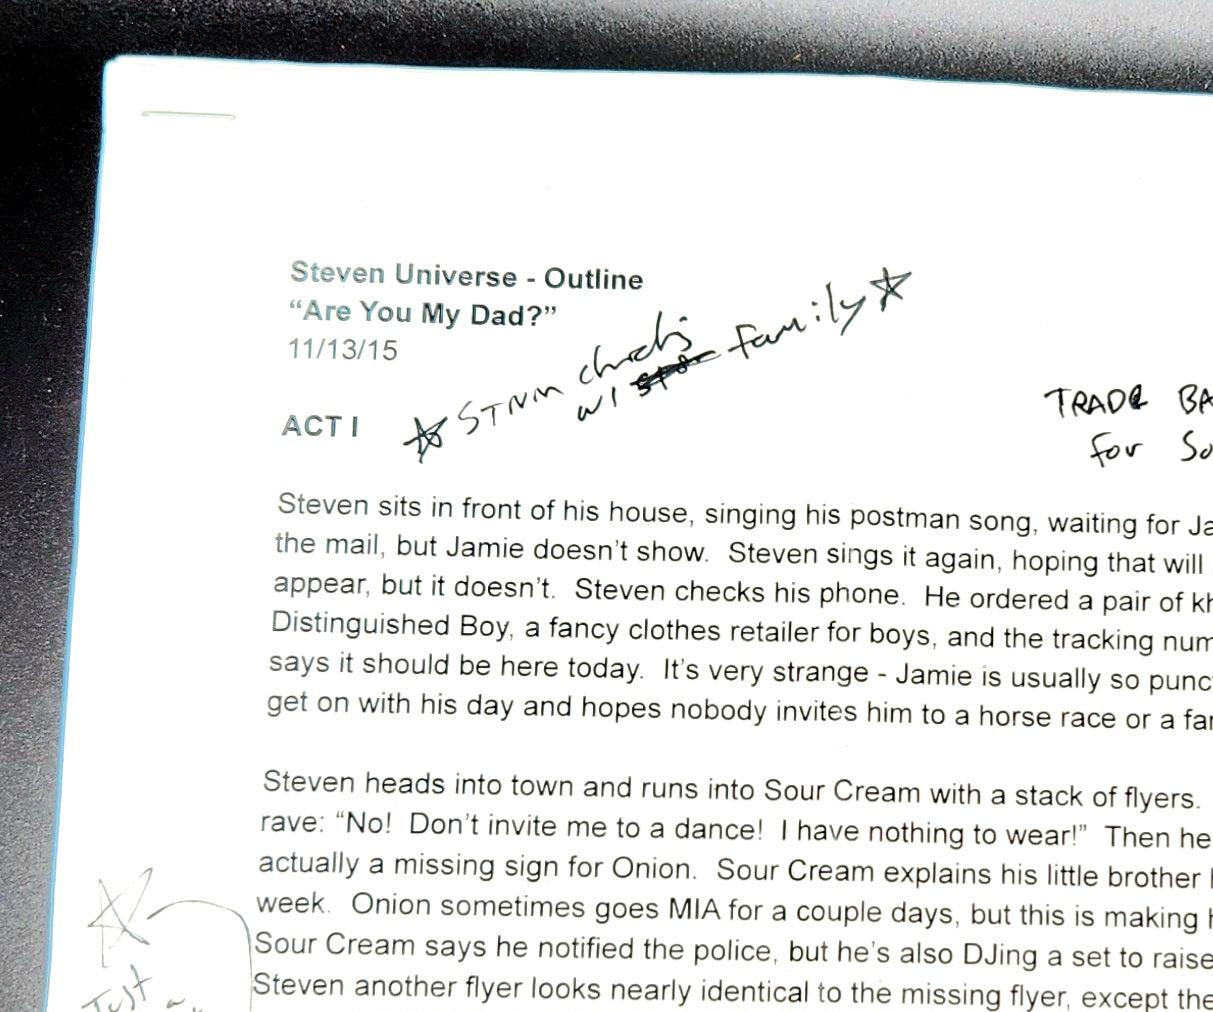 Steven Universe - Outline
“Are You My Dad?”
11/13/15
family
w/
ACT I
TRADE BA
for So
Steven sits in front of his house, singing his postman song, waiting for Ja
the mail, but Jamie doesn’t show.  Steven sings it again, hoping that will
appear, but it doesn’t.  Steven checks his phone.  He ordered a pair of kh
Distinguished Boy, a fancy clothes retailer for boys, and the tracking num
says it should be here today.  It’s very strange - Jamie is usually so punc
get on with his day and hopes nobody invites him to a horse race or a fan
Steven heads into town and runs into Sour Cream with a stack of flyers.
rave: “No!  Don’t invite me to a dance!  I have nothing to wear!”  Then he
actually a missing sign for Onion.  Sour Cream explains his little brother
week.  Onion sometimes goes MIA for a couple days, but this is making
Sour Cream says he notified the police, but he’s also DJing a set to raise
Steven another flyer looks nearly identical to the missing flyer, except the
Just